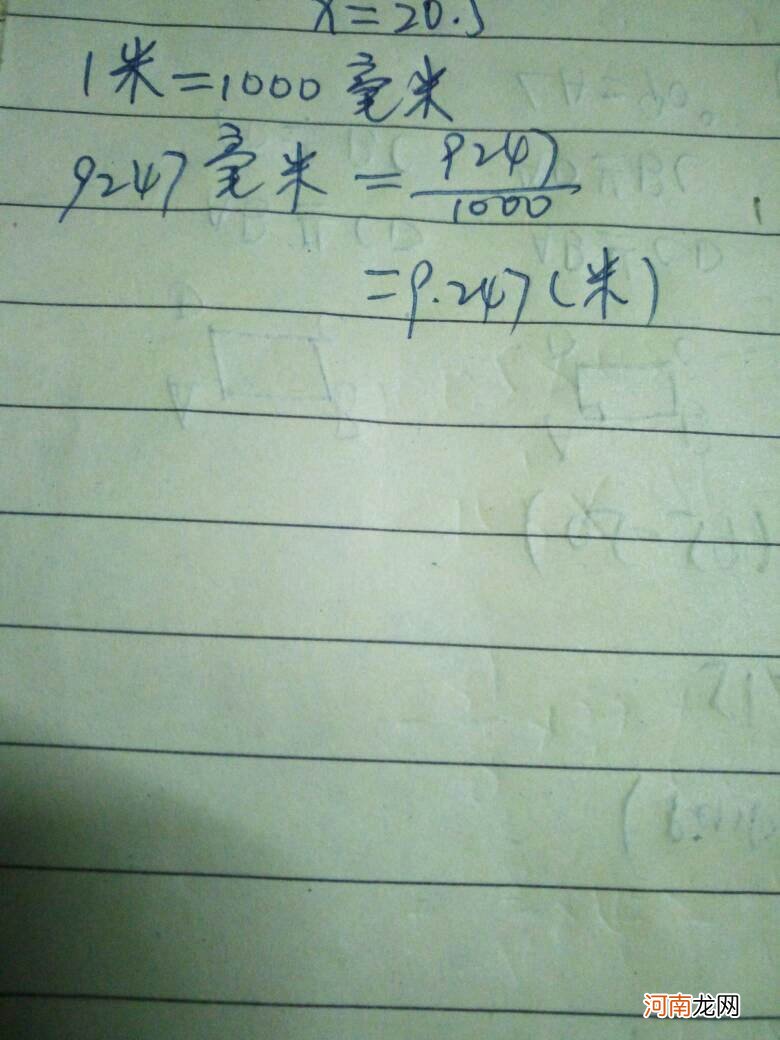 x=20.5
1米=1000毫米
9247毫米=9247/1000
=9.247(米)
河南龙网